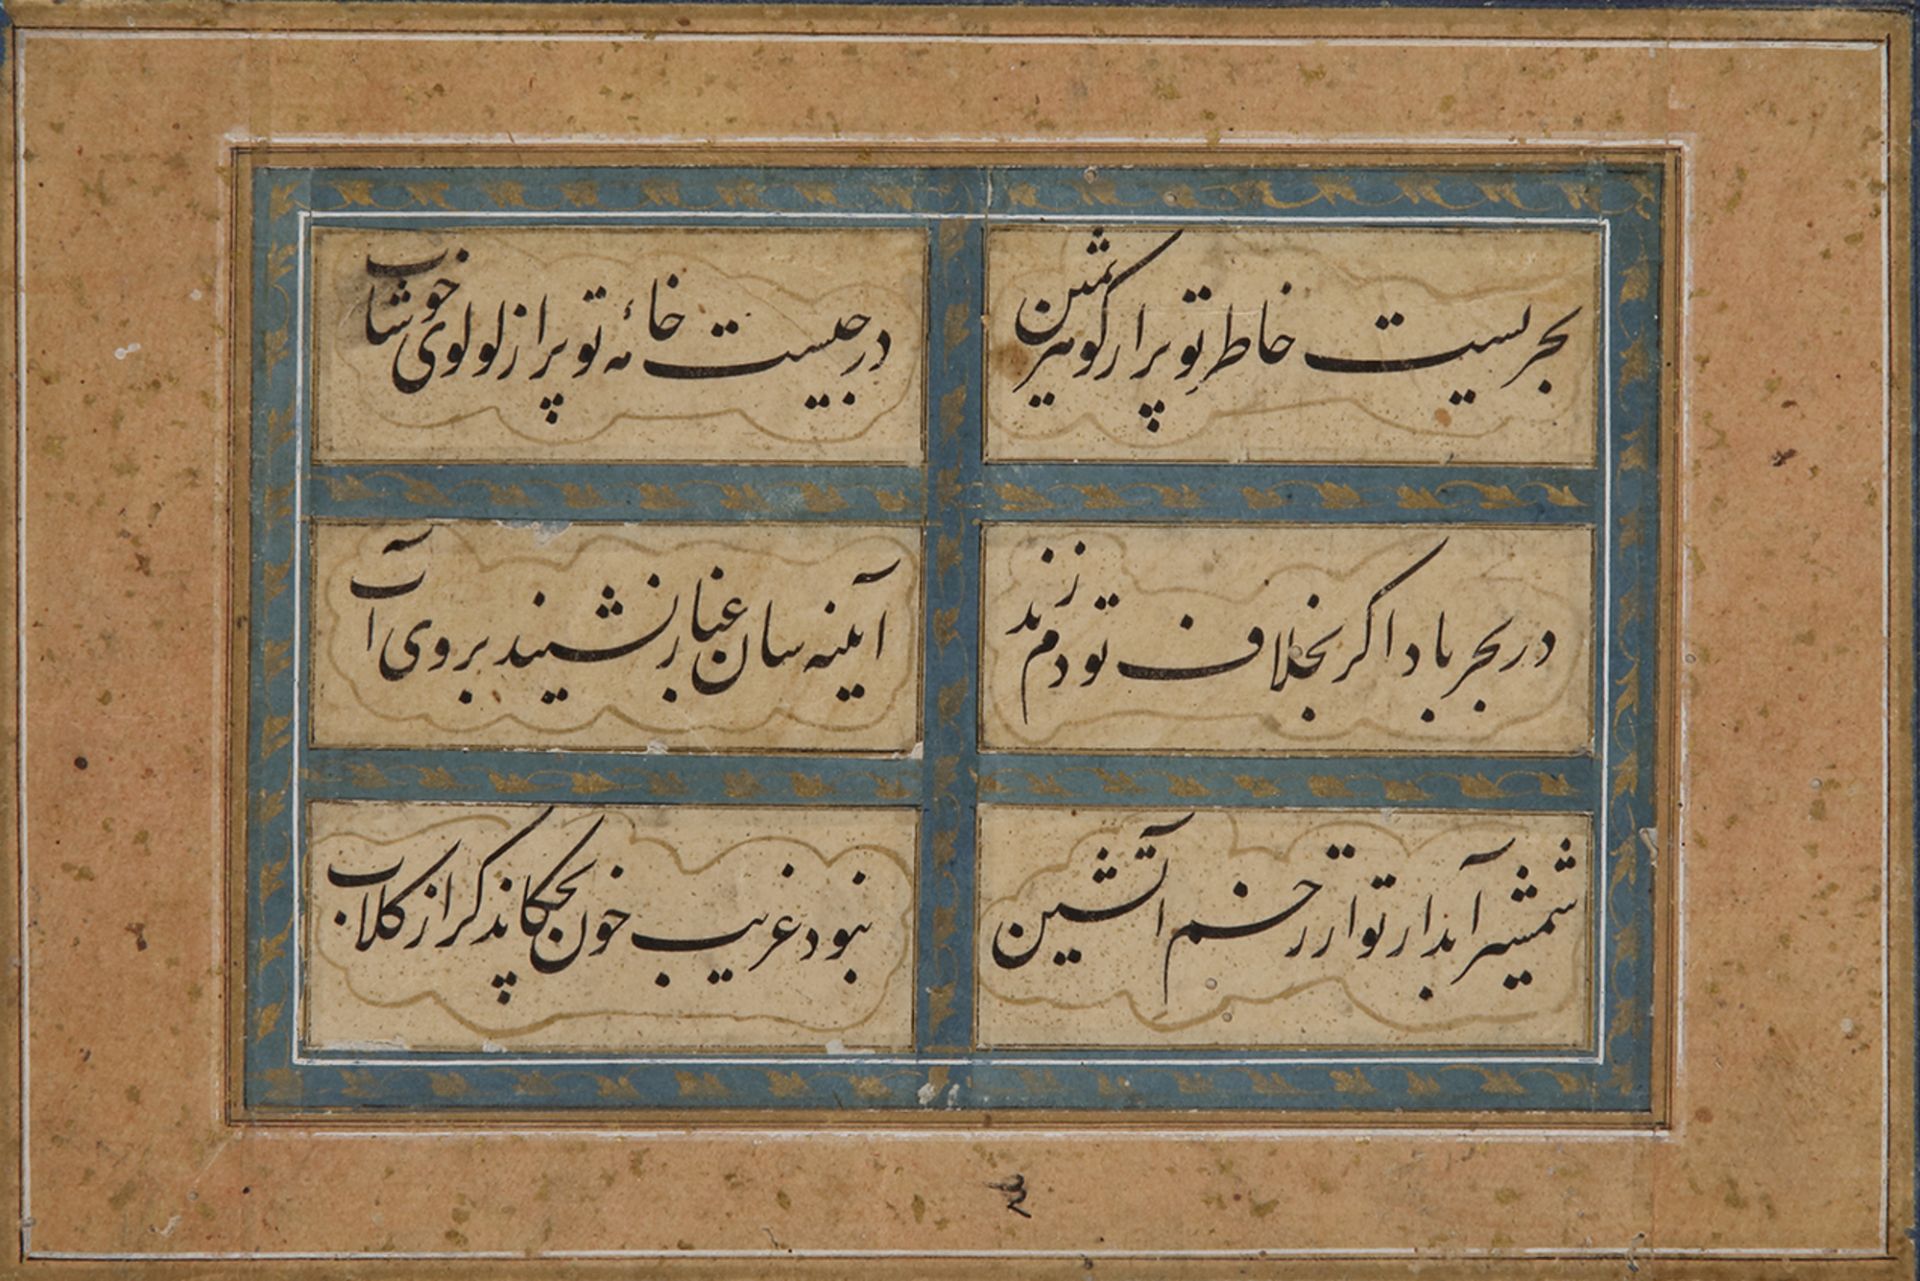 بحریست خاطر تو پر از گوهر ثمین
درجیست خامهٔ تو پر از لولوی خوشاب
در بحر باد اگر بخلاف تو دم زند
آیینه سان غبار نشیند بروی آب
شمشیر آبدار تو از زخم آتشین
نبود غریب خون بچکاند گر از کلاب